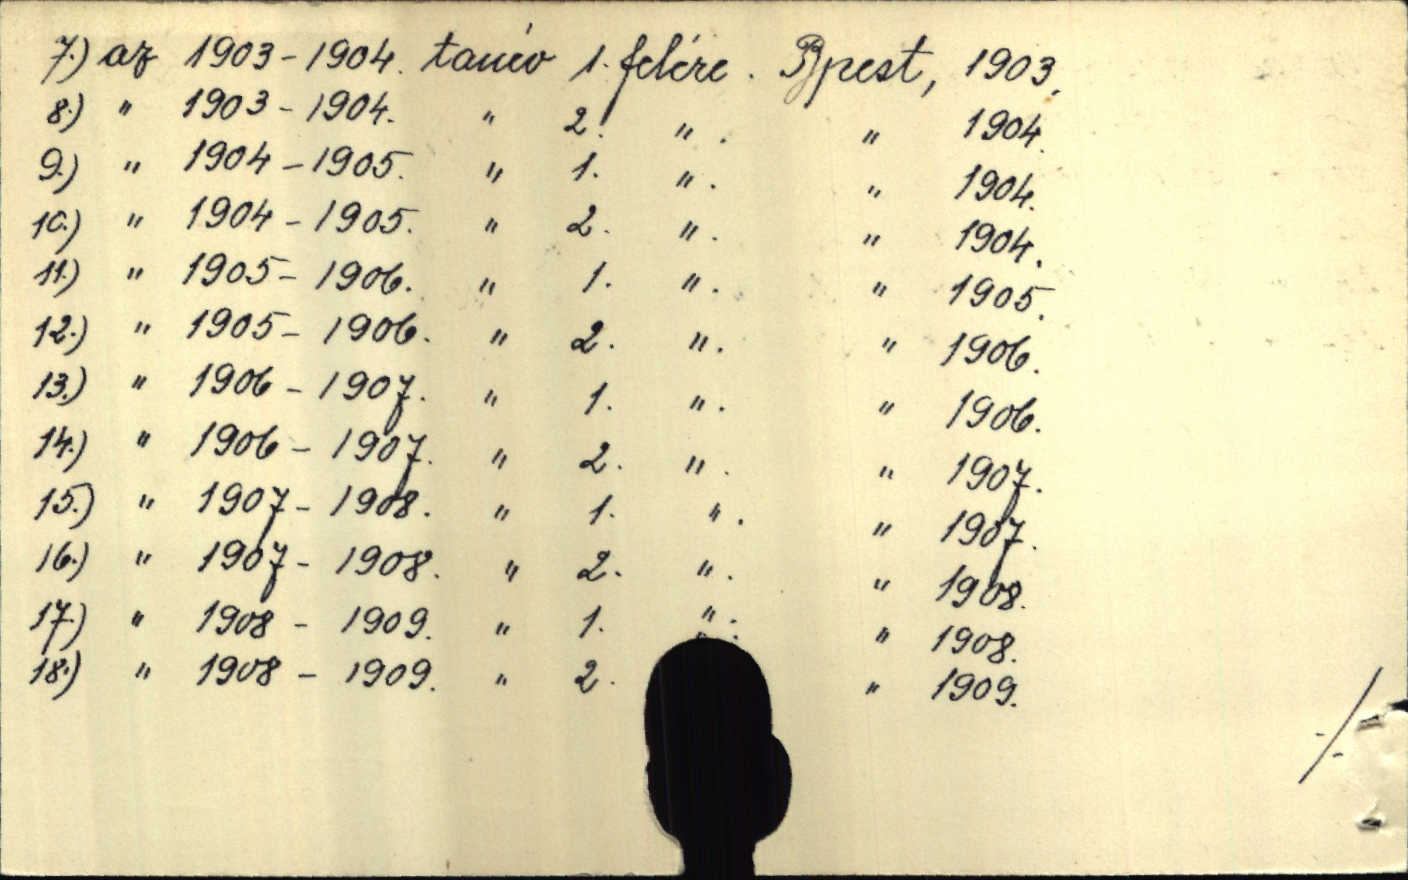 7.) az 1903-1904. tanév 1. felére. Bpest, 1903.
8.) " 1903-1904. " 2. ". " 1904.
9.) " 1904-1905. " 1. ". " 1904.
10.) " 1904-1905. " 2. ". " 1904.
11.) " 1905-1906. " 1. ". " 1905.
12.) " 1905-1906. " 2. ". " 1906.
13.) " 1906-1907. " 1. ". " 1906.
14.) " 1906-1907. " 2. ". " 1907.
15.) " 1907-1908. " 1. ". " 1907.
16.) " 1907-1908. " 2. ". " 1908.
17.) " 1908-1909. " 1. ". " 1908.
18.) " 1908-1909. " 2. " 1909.
-/-